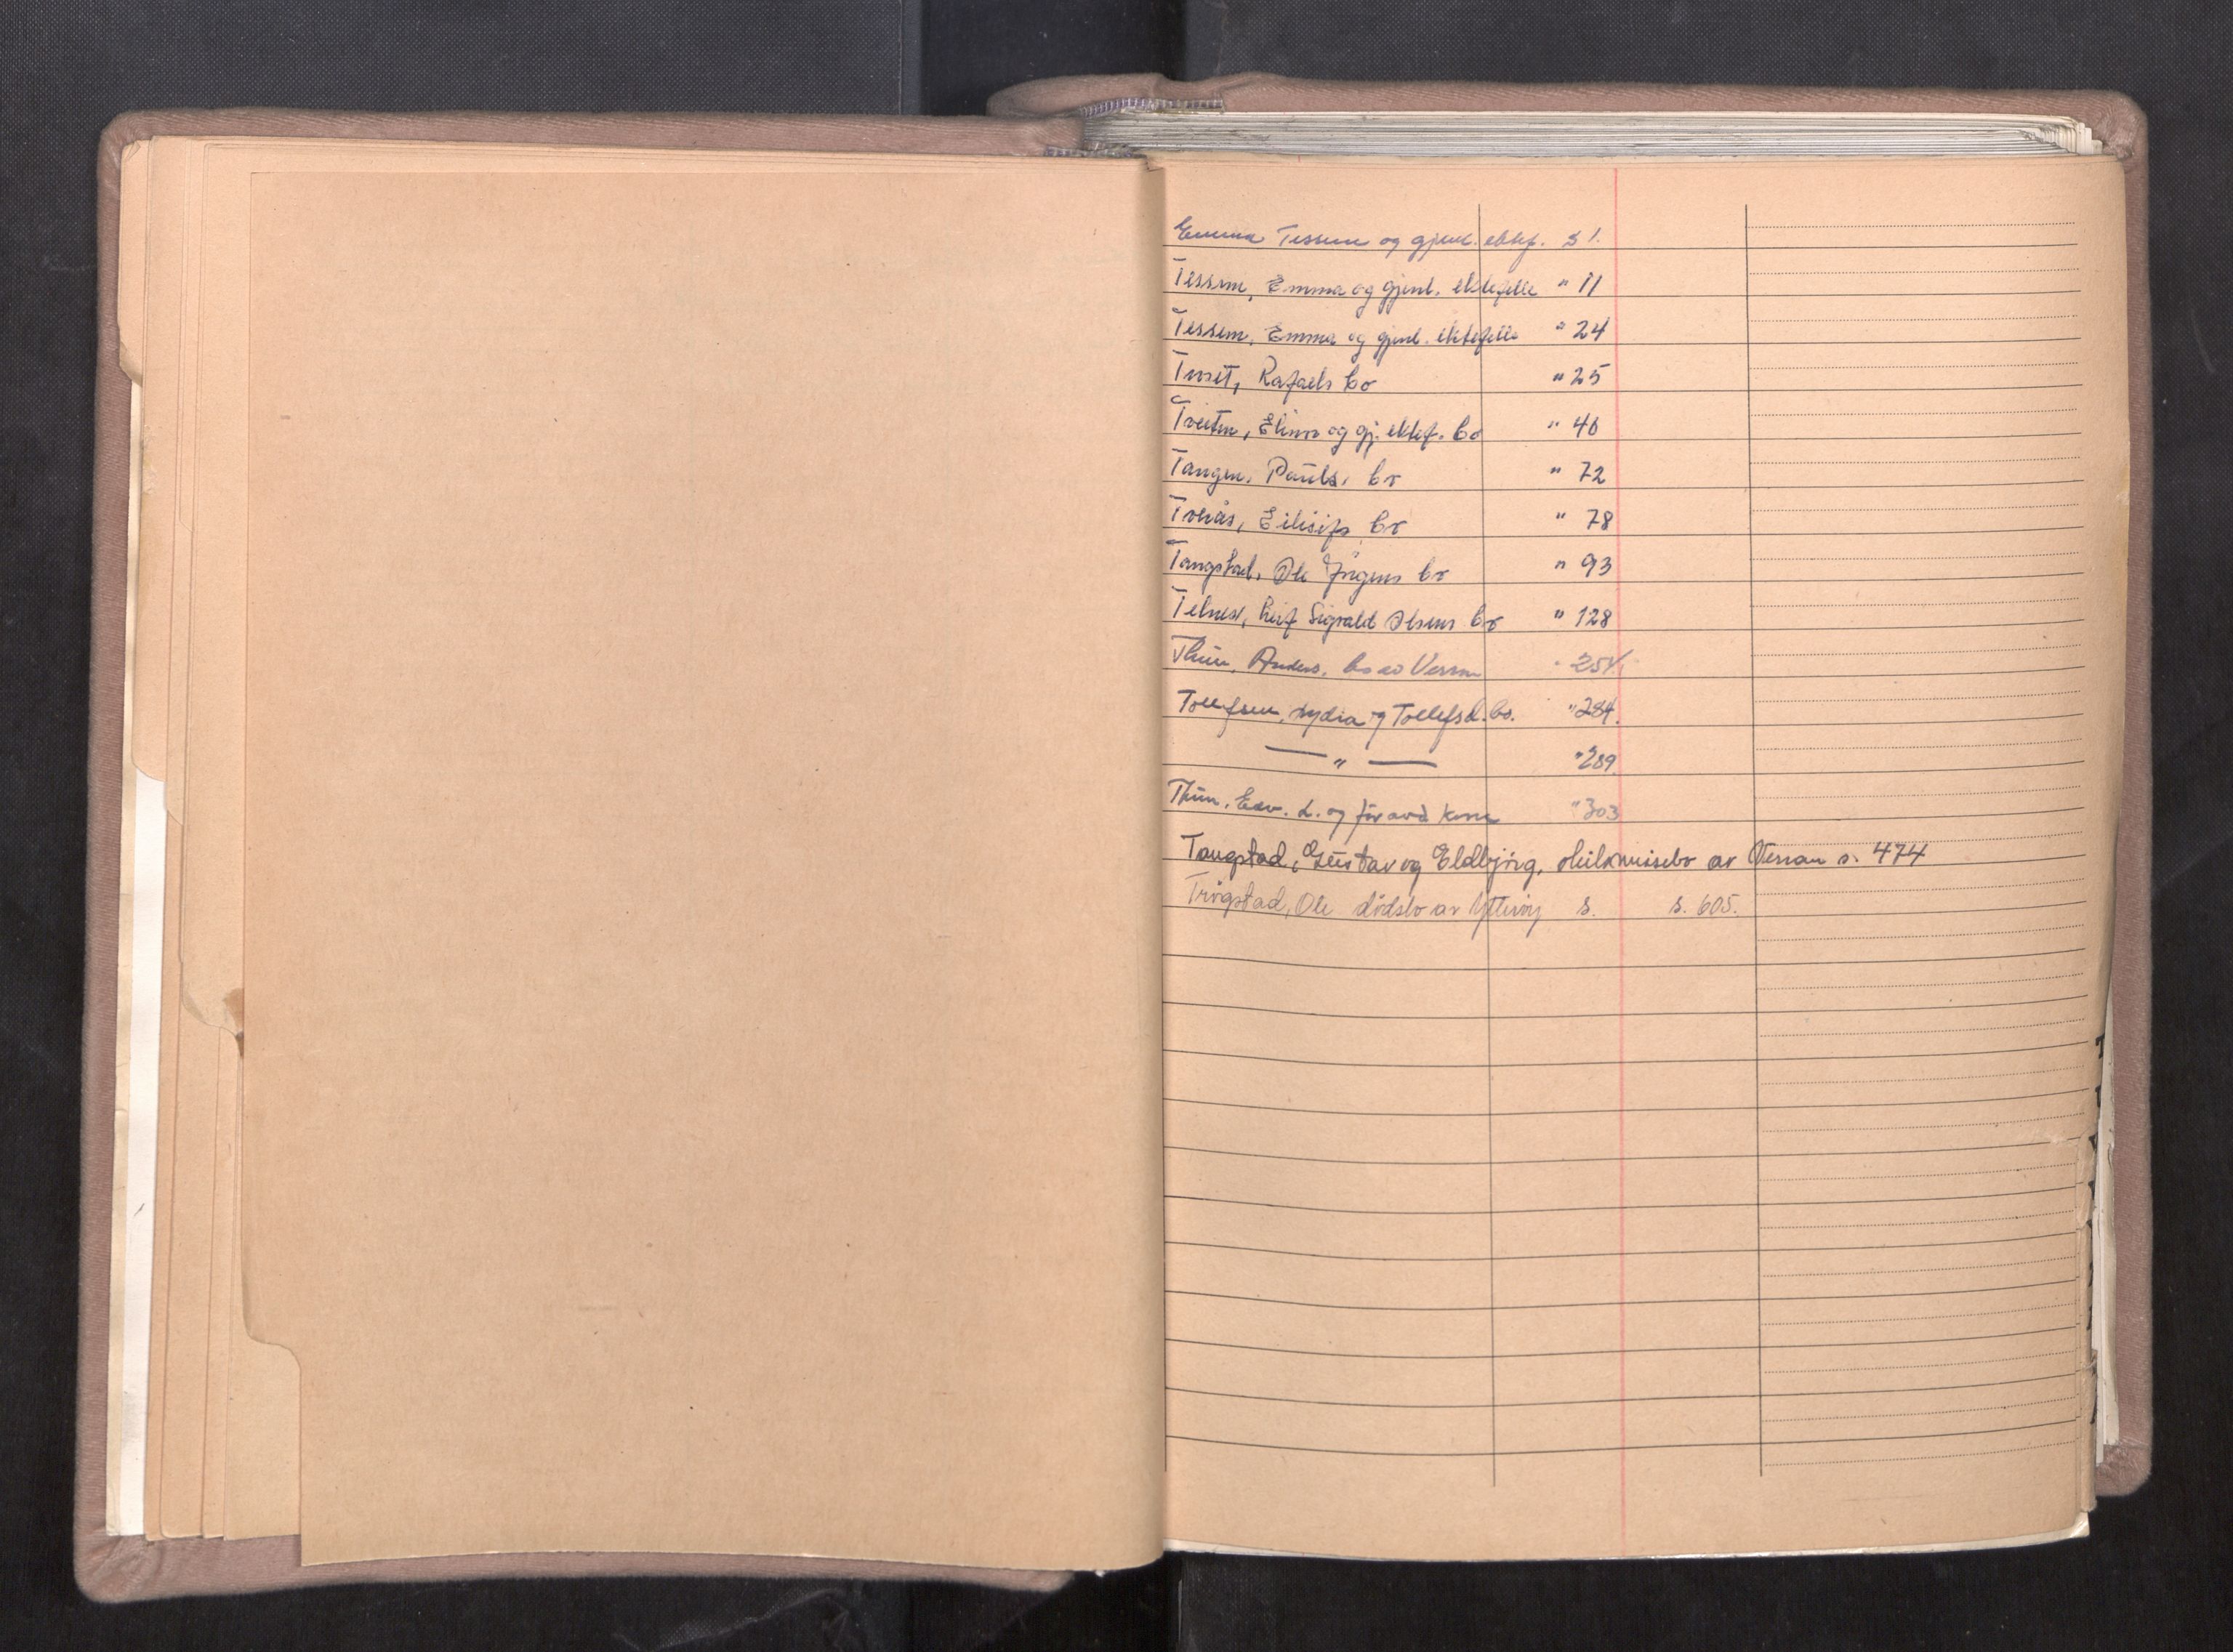 Emma Tessem og gjenl. ektef. s 1.
Tessem, Emma og gjenl. ektefelle " 11
Tessem, Emma og gjenl. ektefelle " 24
Tuset, Rafaels bo " 25
Tveiten, Elinor og gj. ektef. bo " 46
Tangen, Pauls. bo " 72
Tverås, Eilifs bo " 78
Tangstad, Ole Jörgens bo " 93
Telnes, Leif Sigvald Olsens bo " 128
Thun, Anders, bo av Verran " 254.
Tollefsen, Lydia og Tollefs d.bo. " 284.
— " — " 289
Thun, Edv. L. og foravd kone " 303
Tangstad, Gustav og Eldbjörg, skilsmissebo av Verran s. 474
Trögstad, Ole dödsbo av Ytteröy s. s. 605.
T